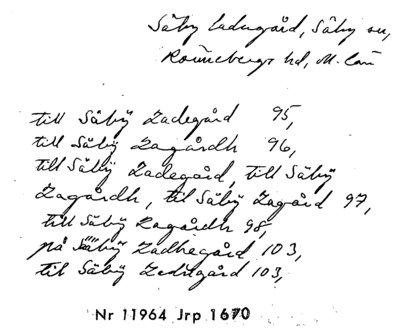 Säby ladugård, Säby sn,
Rönnebergs hd, M. län
till Säbÿ Ladegård 95,
till Säbÿ Lagårdh 96,
till Säbÿ Ladegård, till Säbÿ
Lagårdh, til Säbÿ Lagård 97,
till Säbÿ Lagårdh 98,
på Säbÿ Ladhegård 103,
til Säbÿ Ledugård 103,
Nr 11964 Jrp 1670